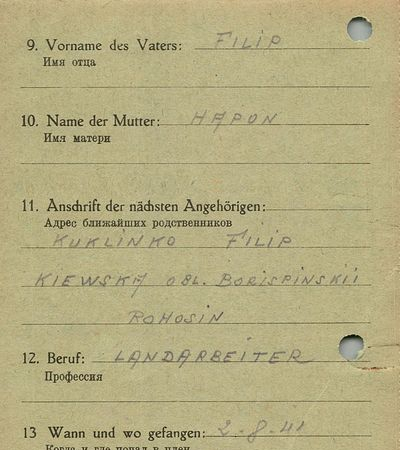 9. Vorname des Vaters: FILIP
Имя отца
10. Name der Mutter: HAPON
Имя матери
11. Anschrift der nächsten Angehörigen:
Адрес ближайших родственников
KUKLINKO FILIP
KIEWSKA OBL. BORISPINSKII
ROHOSIN
12. Beruf: LANDARBEITER
Профессия
13 Wann und wo gefangen: 2-8-41
Когда и где попал в плен